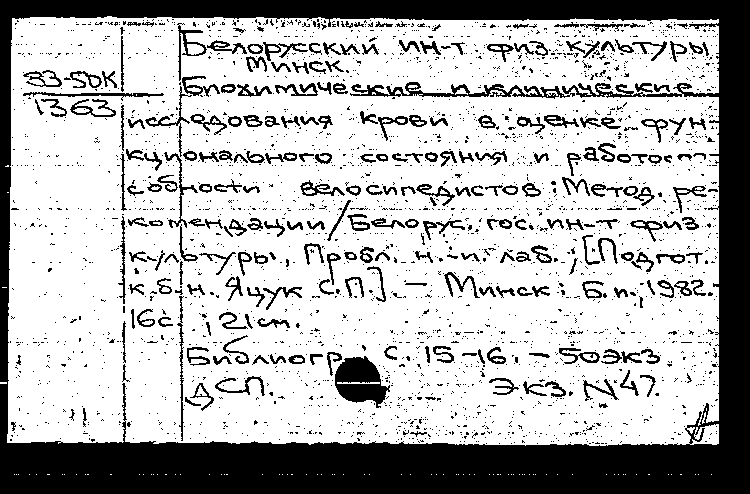 Белорусский ин-т физ. культуры
Минск.
83-50К
1363
Биохимические и клинические
исследования крови в оценке фун-
кционального состояния и работосп-
собности велосипедистов: Метод. ре-
комендации/Белорус. гос. ин-т физ.
культуры, Пробл. н.-и. лаб.; [Подгот.
к.б.н. Яцук С.П.]. — Минск: Б.и., 1982.
16с.; 21см.
Библиогр.: с. 15-16. — 50экз
ДСП. Экз. N47.